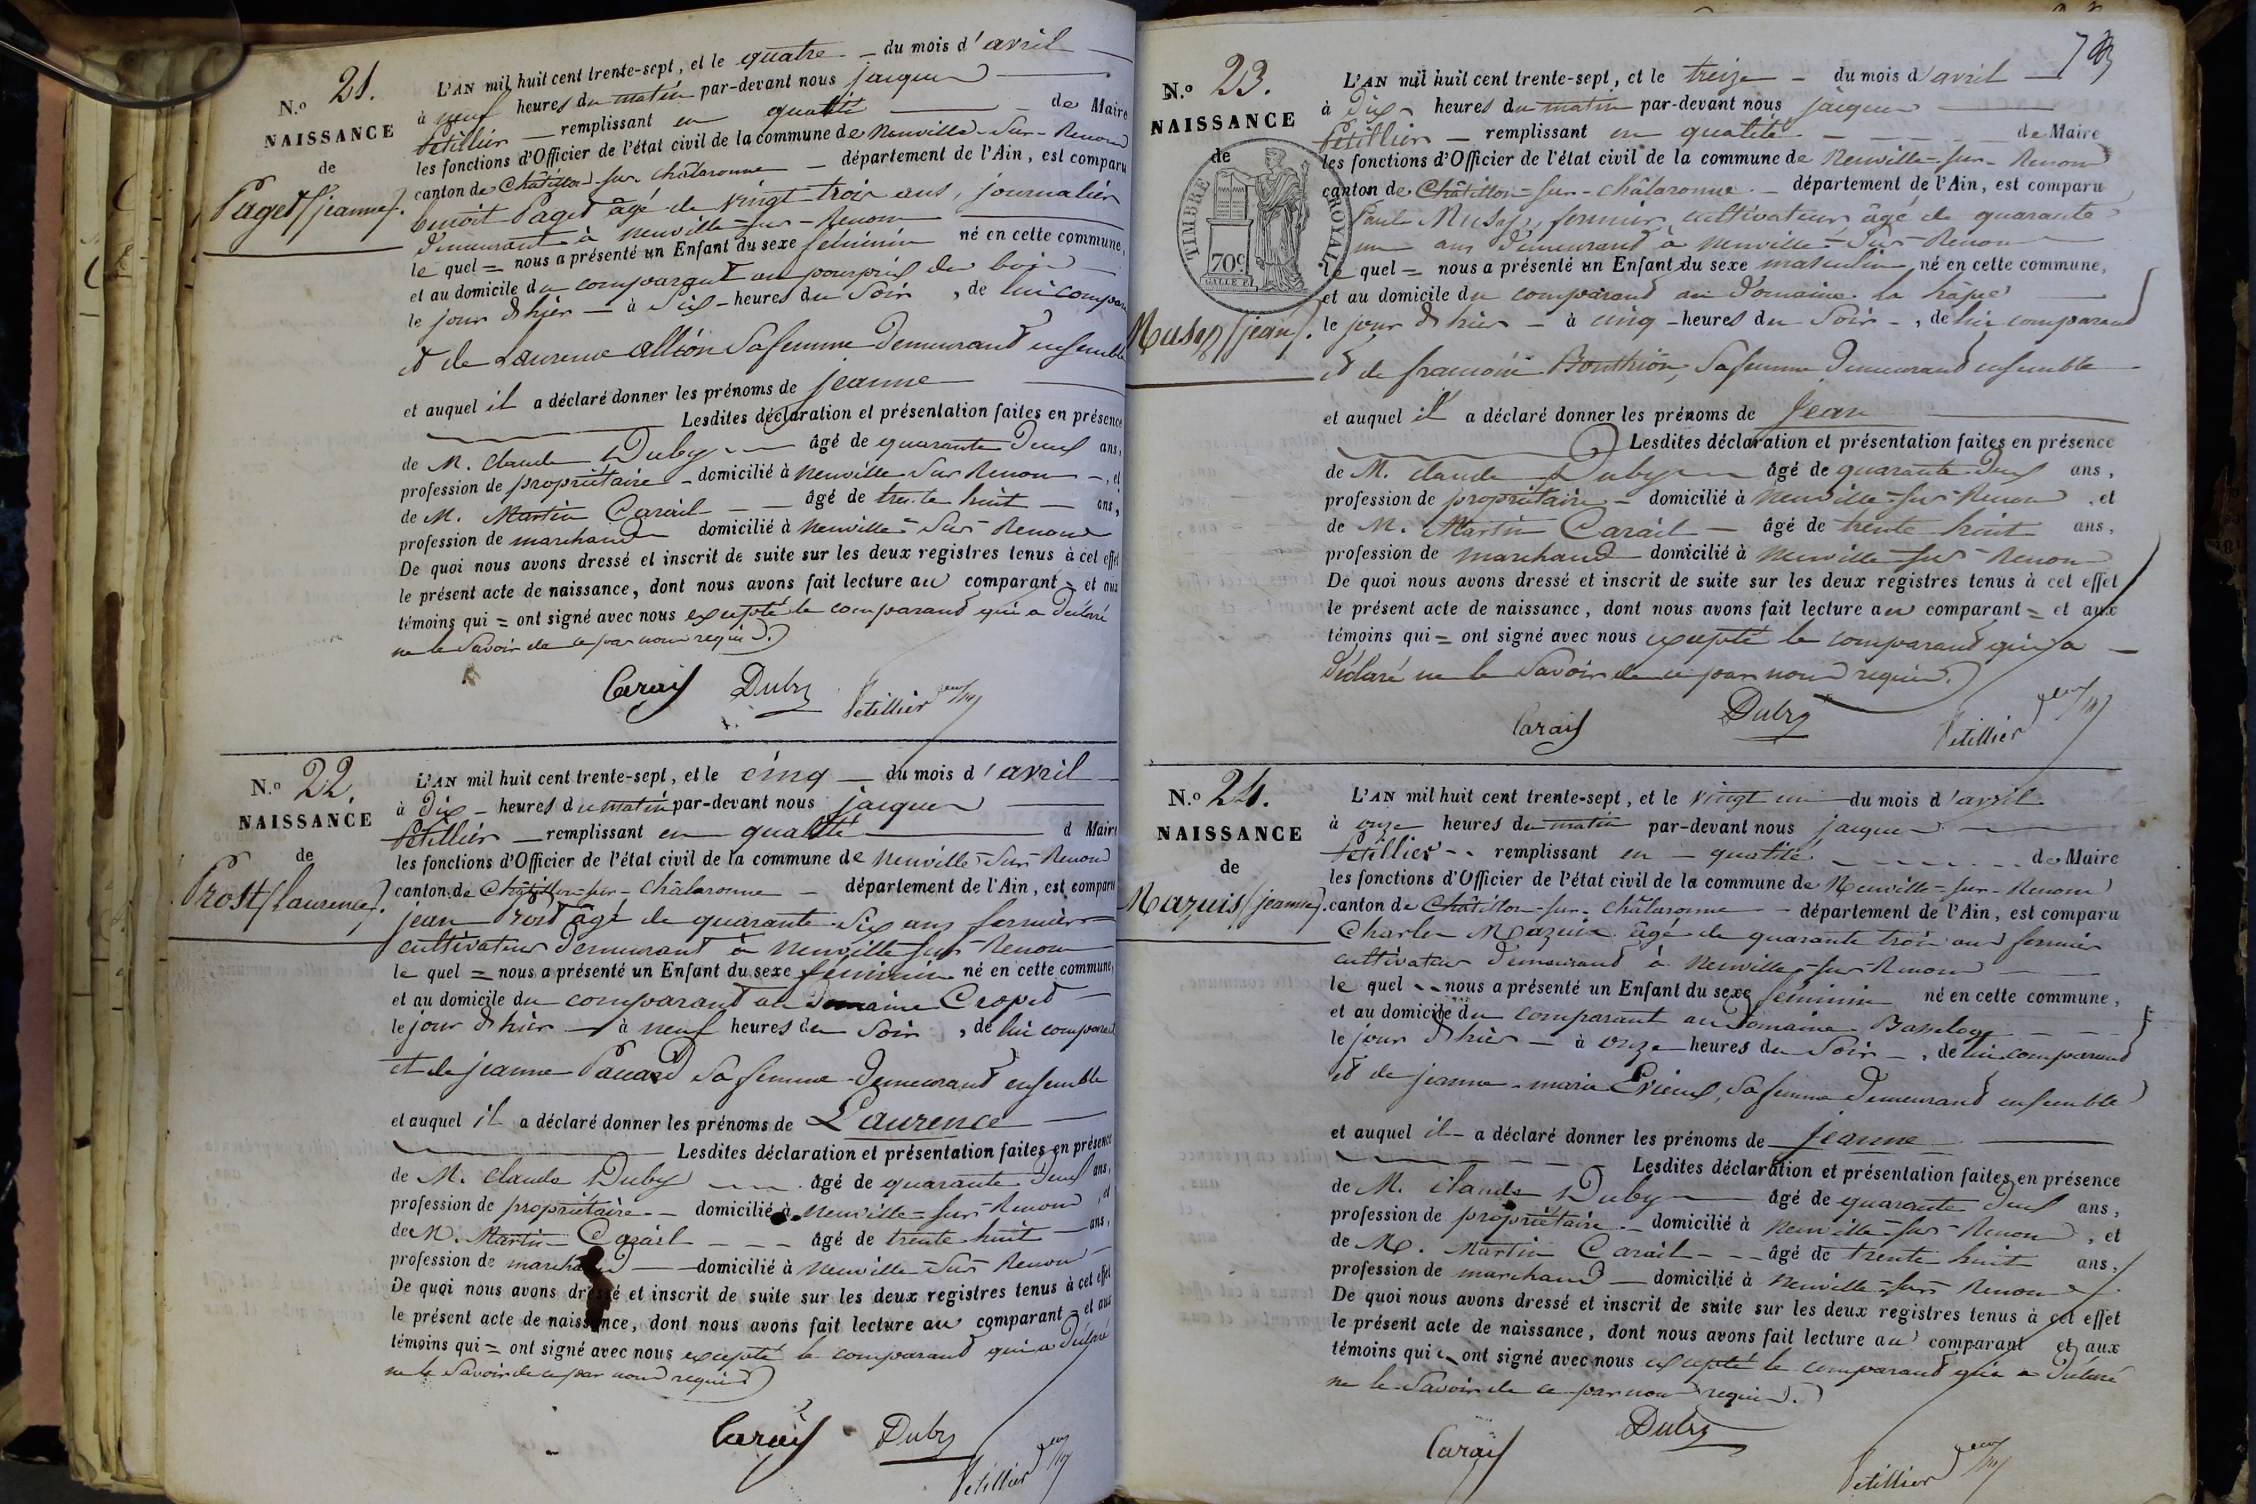 N.o 21.
NAISSANCE
de
Paget (jeanne).
L'AN mil huit cent trente-sept, et le quatre — du mois d'avril
à neuf heures du matin par-devant nous jacques
Petillier — remplissant en qualité — de Maire
les fonctions d'Officier de l'état civil de la commune de Neuville-sur-Renom
canton de Châtillon-sur-châlaronne — département de l'Ain, est comparu
benoit Paget âgé de vingt trois ans, journalier
demeurant à neuville-sur-Renom
le quel = nous a présenté un Enfant du sexe féminin né en cette commune,
et au domicile du comparant au pourpris du bois
le jour d'hier — à six heures du soir, de lui compara
et de Laurence allion sa femme demeurant ensemble
et auquel il a déclaré donner les prénoms de jeanne
Lesdites déclaration et présentation faites en présence
de M. claude Duby — âgé de quarante deux ans,
profession de propriétaire - domicilié à neuville sur Renom —, et
de M. Martin Carail — âgé de trente huit — ans,
profession de marchand domicilié à neuville-sur-Renom
De quoi nous avons dressé et inscrit de suite sur les deux registres tenus à cet effet
le présent acte de naissance, dont nous avons fait lecture au comparant = et aux
témoins qui = ont signé avec nous excepté le comparand qui a déclaré
ne le savoir de ce par nous requis.
Carail Duby Petillier
N.o 22.
NAISSANCE
de
Prost (laurence).
L'AN mil huit cent trente-sept, et le cinq — du mois d'avril
à dix - heures du matin par-devant nous jacques
Petillier — remplissant en qualité — d Maire
les fonctions d'Officier de l'état civil de la commune de neuville-sur-Renom
canton de Châtillon-sur-châlaronne — département de l'Ain, est comparu
jean Prost âgé de quarante six ans fermier
cultivateur demeurant à neuville-sur-Renom
le quel = nous a présenté un Enfant du sexe féminin né en cette commune,
et au domicile du comparant au domaine Cropet
le jour d'hier — à neuf heures du soir, de lui comparant
et de jeanne Pauard sa femme demeurant ensemble
et auquel il a déclaré donner les prénoms de Laurence
Lesdites déclaration et présentation faites en présence
de M. claude Duby — âgé de quarante deux ans,
profession de propriétaire — domicilié à neuville-sur-Renom, et
de M. Martin Carail — âgé de trente huit — ans,
profession de marchand — domicilié à neuville-sur-Renom
De quoi nous avons dressé et inscrit de suite sur les deux registres tenus à cet effet
le présent acte de naissance, dont nous avons fait lecture au comparant = et aux
témoins qui = ont signé avec nous excepté le comparand qui a déclaré
ne le savoir de ce par nous requis
Carail Duby Petillier
N.o 23.
NAISSANCE
de
TIMBRE ROYAL
70c
Musy (jean).
L'AN mil huit cent trente-sept, et le treize — du mois d'avril
à dix heures du matin par-devant nous jacques
Petillier — remplissant en qualité — de Maire
les fonctions d'Officier de l'état civil de la commune de Neuville-sur-Renom
canton de Châtillon-sur-châlaronne — département de l'Ain, est comparu
Paul Musy, fermier cultivateur âgé de quarante
un ans demeurand à neuville-sur-Renom
le quel = nous a présenté un Enfant du sexe masculin né en cette commune,
et au domicile du comparand au domaine la hâpie
le jour d'hier — à cinq - heures du soir —, de lui comparand
et de francoise Bouthion, sa femme demeurand ensemble
et auquel il a déclaré donner les prénoms de Jean
Lesdites déclaration et présentation faites en présence
de M. claude Duby — âgé de quarante deux ans,
profession de propriétaire — domicilié à neuville-sur-Renom, et
de M. Martin Carail — âgé de trente huit ans,
profession de marchand domicilié à neuville-sur-Renom
De quoi nous avons dressé et inscrit de suite sur les deux registres tenus à cet effet
le présent acte de naissance, dont nous avons fait lecture au comparant = et aux
témoins qui = ont signé avec nous excepté le comparand qui a
déclaré ne le savoir de ce par nous requis.
Carail Duby Petillier
N.o 24.
NAISSANCE
de
Mazuis (jeanne).
L'AN mil huit cent trente-sept, et le vingt un — du mois d'avril
à onze heures du matin par-devant nous jacques
Petillier - - remplissant en — qualité — de Maire
les fonctions d'Officier de l'état civil de la commune de Neuville-sur-Renom
canton de Châtillon-sur-châlaronne — département de l'Ain, est comparu
Charles Mazuis âgé de quarante trois ans fermier
cultivateur demeurand à neuville-sur-Renom
le quel - - nous a présenté un Enfant du sexe féminin né en cette commune,
et au domicile du comparant au domaine
le jour d'hier — à onze heures du soir —, de lui comparand
et de jeanne-marie Evieux, sa femme demeurand ensemble
et auquel il — a déclaré donner les prénoms de jeanne
Lesdites déclaration et présentation faites en présence
de M. claude Duby — âgé de quarante deux ans,
profession de propriétaire — domicilié à neuville-sur-Renom, et
de M. Martin Carail — âgé de trente huit ans,
profession de marchand — domicilié à neuville-sur-Renom
De quoi nous avons dressé et inscrit de suite sur les deux registres tenus à cet effet
le présent acte de naissance, dont nous avons fait lecture au comparant et aux
témoins qui ont signé avec nous excepté le comparand qui a déclaré
ne le savoir de ce par nous requis.
Carail Duby Petillier